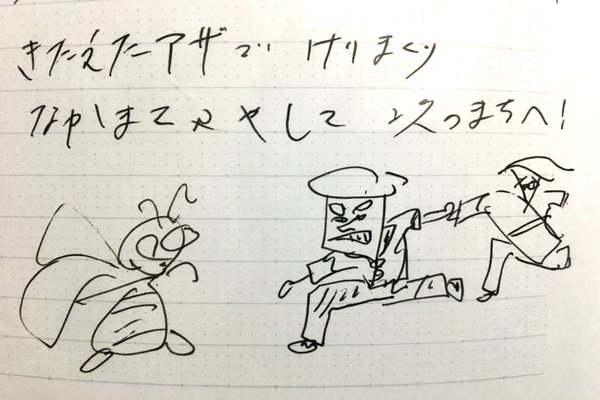 きたえたワザで けりまくり
なかまを ふやして 次のまちへ!